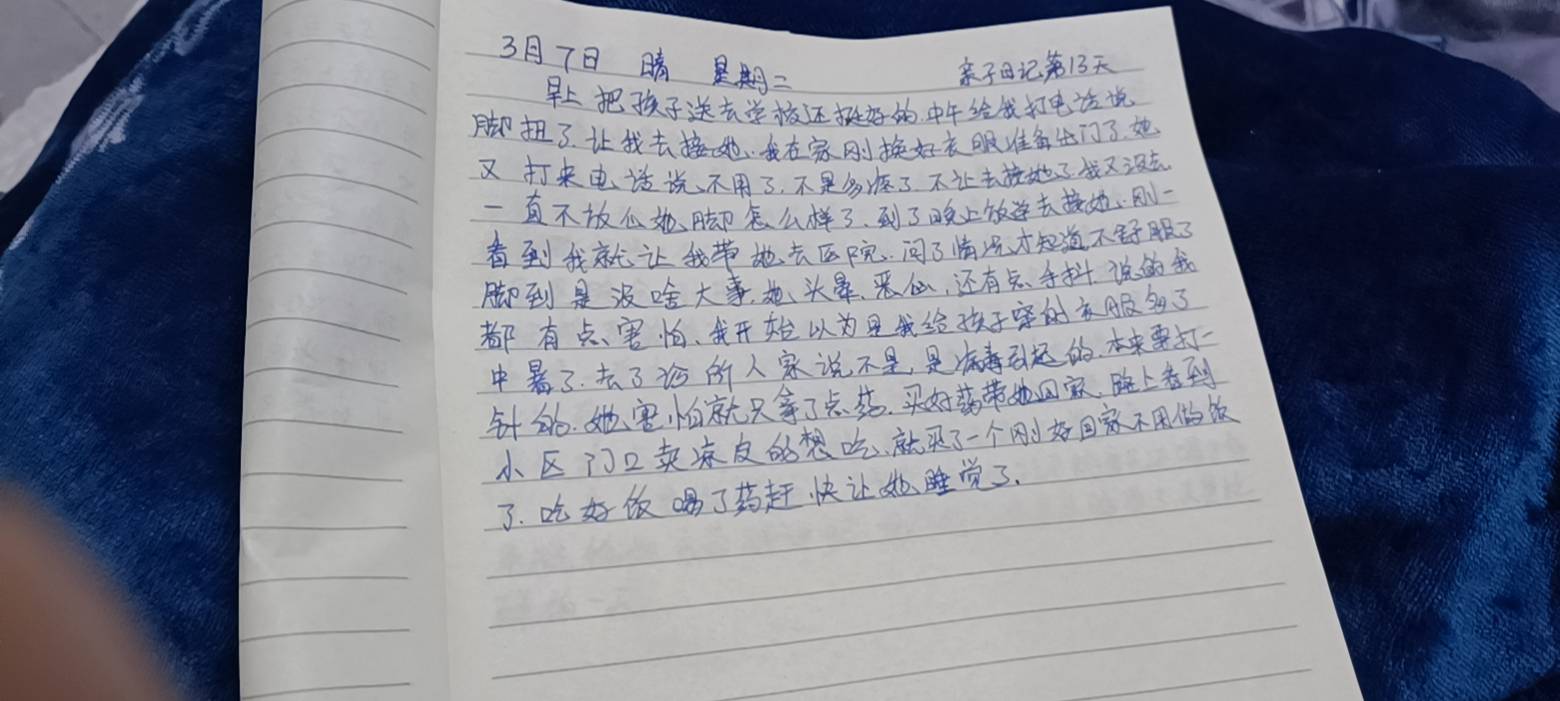 3月7日 晴 星期二 亲子日记第13天
早上把孩子送去学校还挺好的.中午给我打电话说
脚扭了.让我去接她.我在家刚换好衣服准备出门了.她
又打来电话说不用了.不是多疼了.不让去接她了.我又没去
一直不放心她脚怎么样了.到了晚上放学去接她.刚一
看到我就让我带她去医院.问了情况才知道不舒服了
脚到是没啥大事.她头晕.恶心.还有点手抖.说的我
都有点害怕.我开始以为是我给孩子穿的衣服多了
中暑了.去了诊所人家说不是.是病毒引起的.本来要打一
针的.她害怕就只拿了点药.买好药带她回家.路上看到
小区门口卖凉皮的想吃.就买了一个刚好回家不用做饭
了.吃好饭喝了药赶快让她睡觉了.